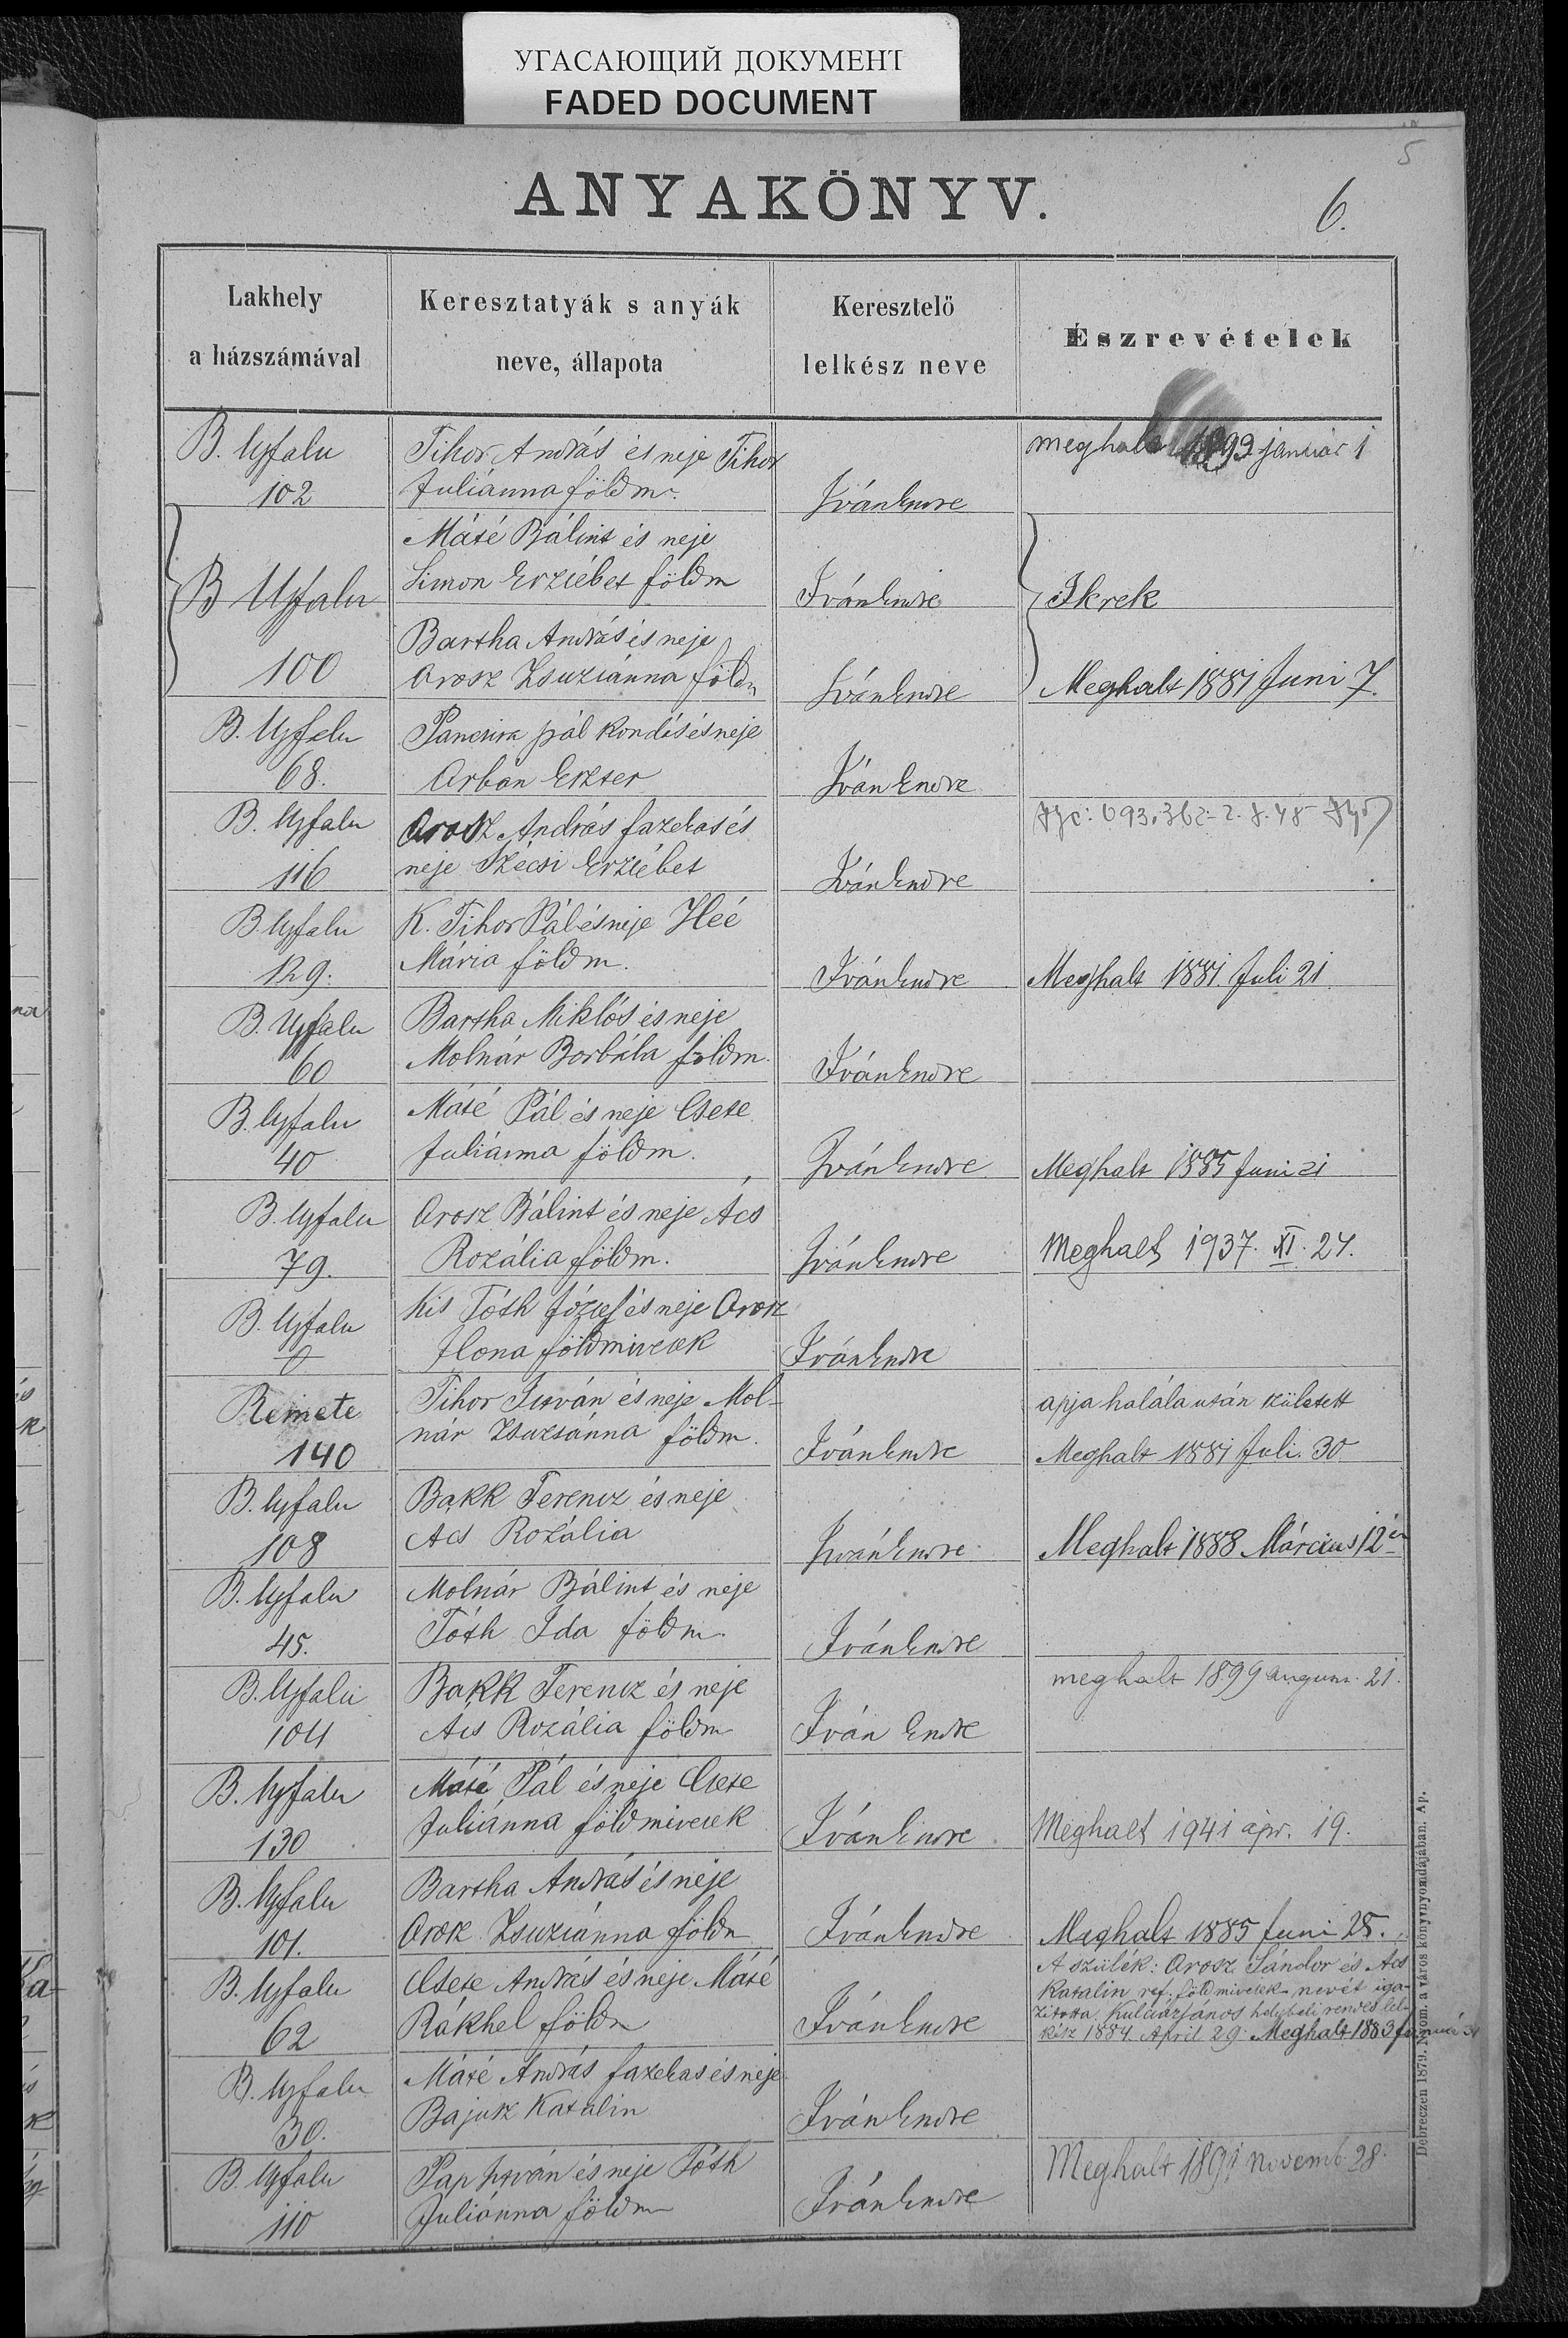 УГАСАЮЩИЙ ДОКУМЕНТ
FADED DOCUMENT
5
ANYAKÖNYV.
6.
Lakhely
a házszámával
Keresztatyák s anyák
neve, állapota
Keresztelő
lelkész neve
Észrevételek
B. Ujfalu
102
Tihor András és neje Tihor
Juliánna földm.
Iván Endre
meghalt 1893 január 1
B Ujfalu
100
Máté Bálint és neje
Simon Erzsébet földm
Iván Endre
Ikrek
Bartha András és neje
Orosz Zsuzsánna földm
Iván Endre
Meghalt 1881 Juni 7.
B. Ujfalu
68.
Pancsira pál kondás és neje
Orbán Eszter
Iván Endre
B. Ujfalu
116
Orosz András fazekas és
neje Szécsi Erzsébet
Iván Endre
B Ujfalu
129.
K. Tihor Pál és neje Heé
Mária földm.
Iván Endre
Meghalt 1881. Juli 21
B. Ujfalu
60
Bartha Miklós és neje
Molnár Borbála földm.
Iván Endre
B. Ujfalu
40
Máté Pál és neje Csete
Juliánna földm.
Iván Endre
Meghalt 1885 Juni 21
B. Ujfalu
79.
Orosz Bálint és neje Ács
Rozália földm.
Iván Endre
Meghalt 1937. XI. 24.
B. Ujfalu
0
Kis Tóth József és neje Orosz
Ilona földmivesek
Iván Endre
Remete
140
Tihor István és neje Mol-
nár Zsuzsánna földm.
Iván Endre
apja halála után született
Meghalt 1881 Juli. 30
B. Ujfalu
108
Bakk Ferencz és neje
Acs Rozália
Iván Endre
Meghalt 1888 Március 12én
B. Ujfalu
45.
Molnár Bálint és neje
Tóth Ida földm.
Iván Endre
B. Ujfalu
104
Bakk Ferencz és neje
Acs Rozália földm
Iván Endre
meghalt 1899 augusz. 21.
B. Ujfalu
130
Máté Pál és neje Csete
Juliánna földmivesek
Iván Endre
Meghalt 1941 ápr. 19.
B. Ujfalu
101.
Bartha András és neje
Orosz Zsuzsánna földm
Iván Endre
Meghalt 1885 Juni 25.
B. Ujfalu
62
Csete András és neje Máté
Rákhel földm
Iván Endre
A szülék: Orosz Sándor és Acs
Katalin ref. földmivesek nevét iga-
zította Kulcsár János helybeli rendes lel-
kész 1884. April 29. Meghalt 1883 Január 31
B. Ujfalu
30.
Máté András fazekas és neje
Bajusz Katalin
Iván Endre
B. Ujfalu
110
Pap István és neje Tóth
Juliánna földm
Iván Endre
Meghalt 1891 novemb. 28.
Debreczen 1879. Nyom. a város könyvnyomdájában. Ap.